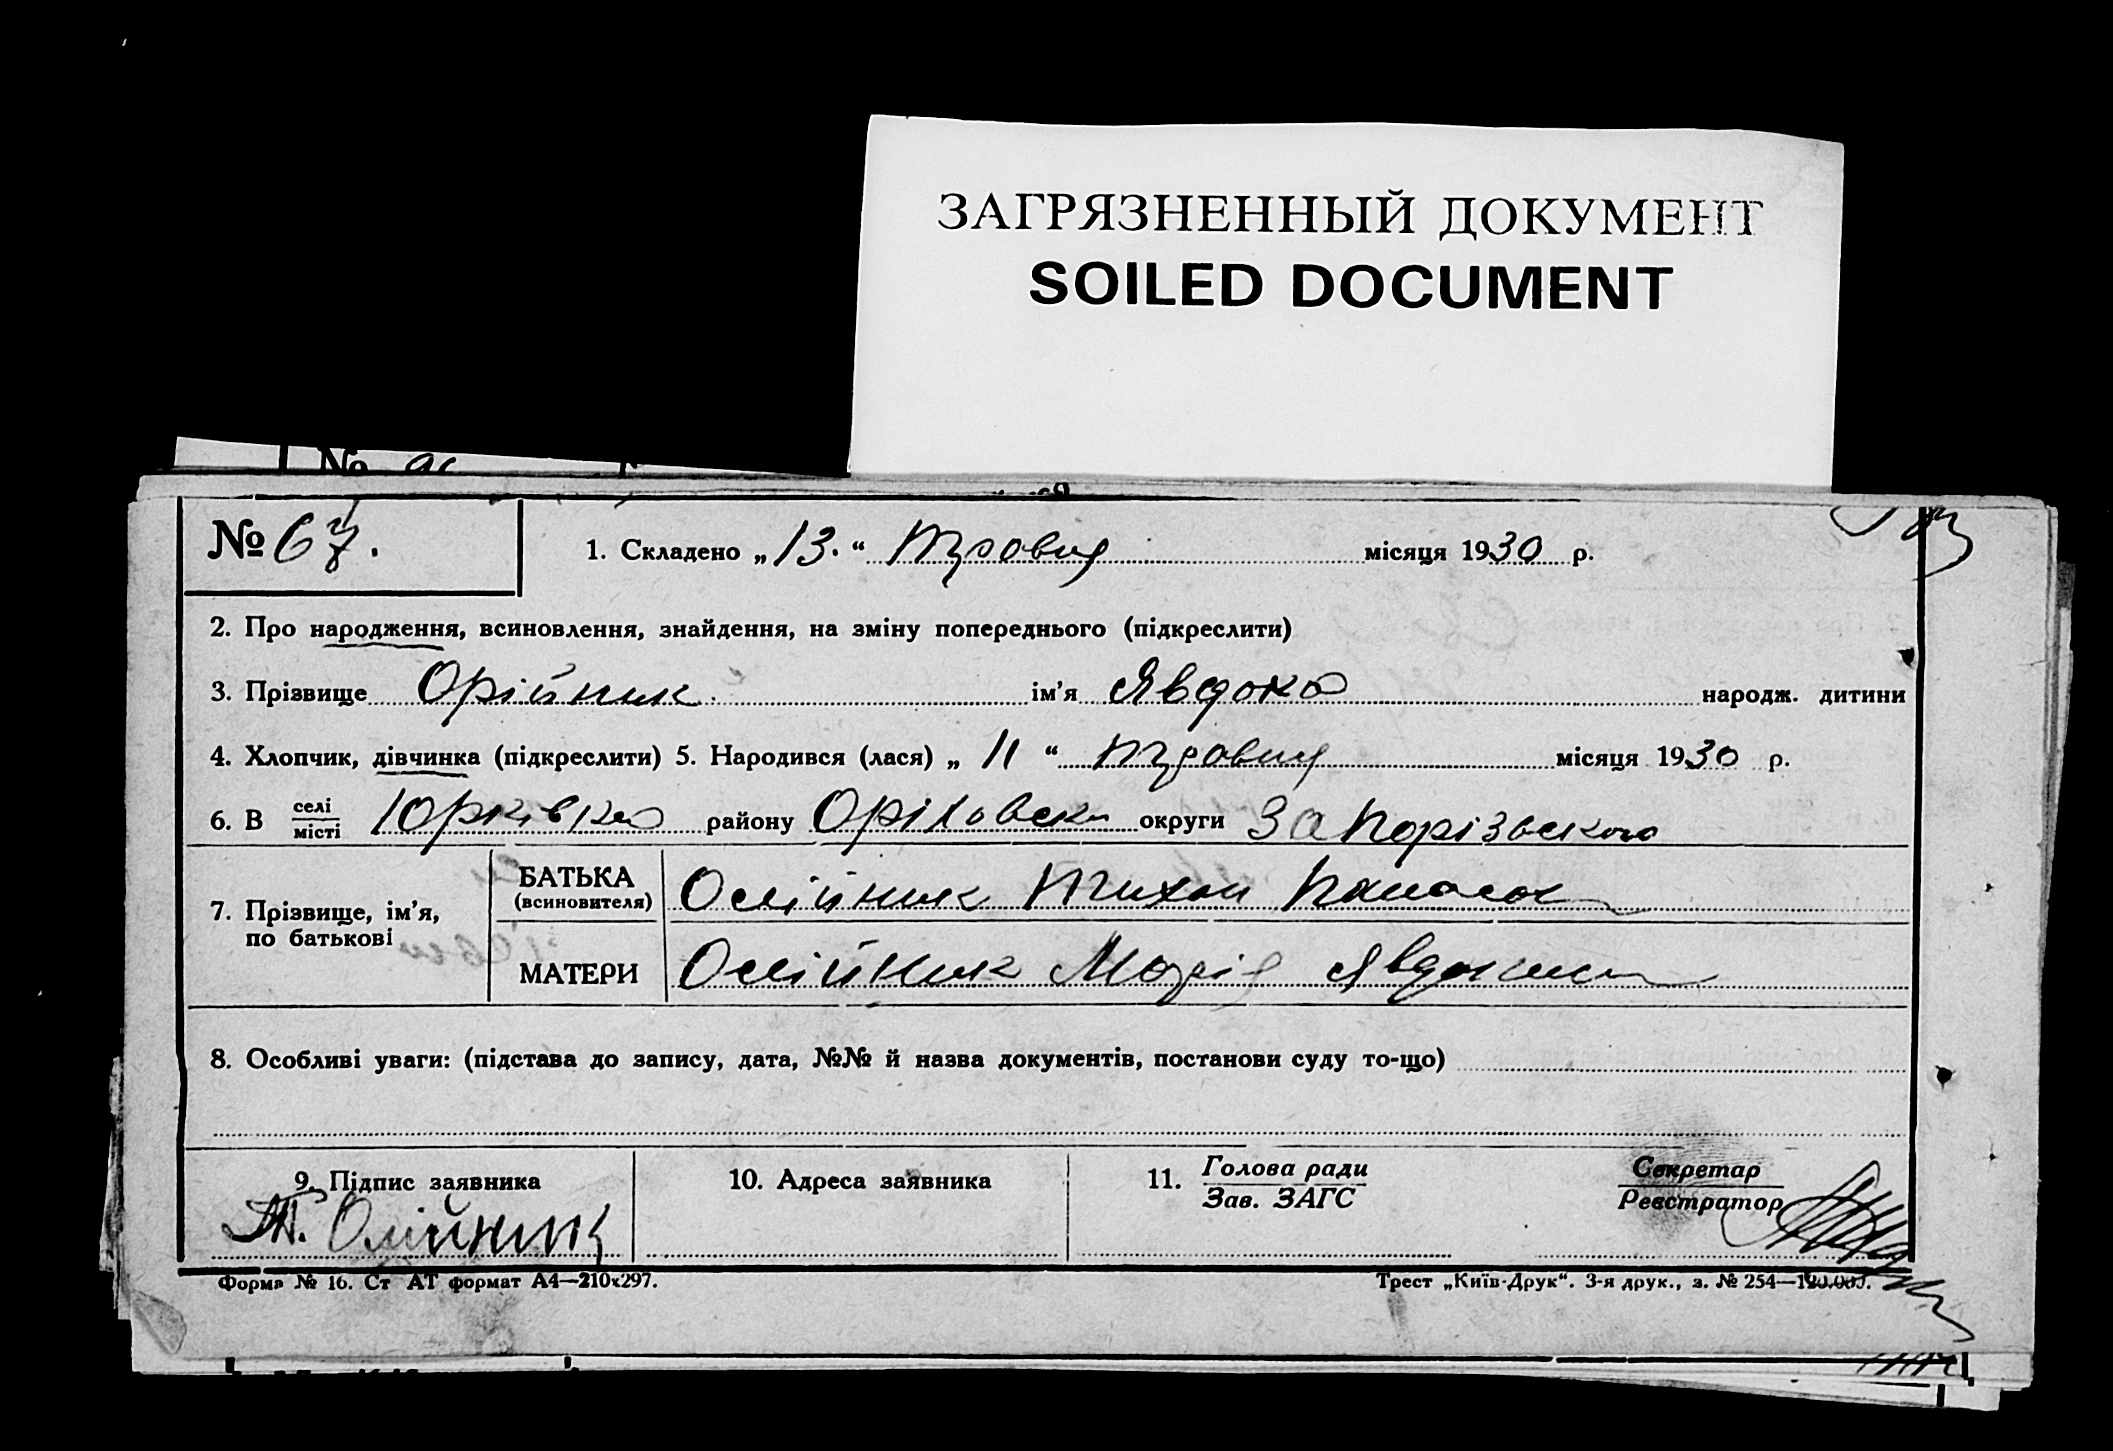 ЗАГРЯЗНЕННЫЙ ДОКУМЕНТ
SOILED DOCUMENT
№ 67.
1. Складено „13.“ Травня місяця 1930 р.
2. Про народження, всиновлення, знайдення, на зміну попереднього (підкреслити)
3. Прізвище Орійник ім’я Явдока народж. дитини
4. Хлопчик, дівчинка (підкреслити) 5. Народився (лася) „ 11 “ Травня місяця 1930 р.
6. В селі/місті Юрківка району Оріховськ округи Запорізської
7. Прізвище, ім’я, по батькові
БАТЬКА (всиновителя) Олійник Тихон Панасов
МАТЕРИ Олійник Марія
8. Особливі уваги: (підстава до запису, дата, №№ й назва документів, постанови суду то-що)
9. Підпис заявника
Т. Олійник
10. Адреса заявника
11. Голова ради
Зав. ЗАГС
Секретар
Реєстратор
Форма № 16. Ст АТ формат А4—210х297.
Трест „Київ-Друк“. 3-я друк., з. № 254—120.000.